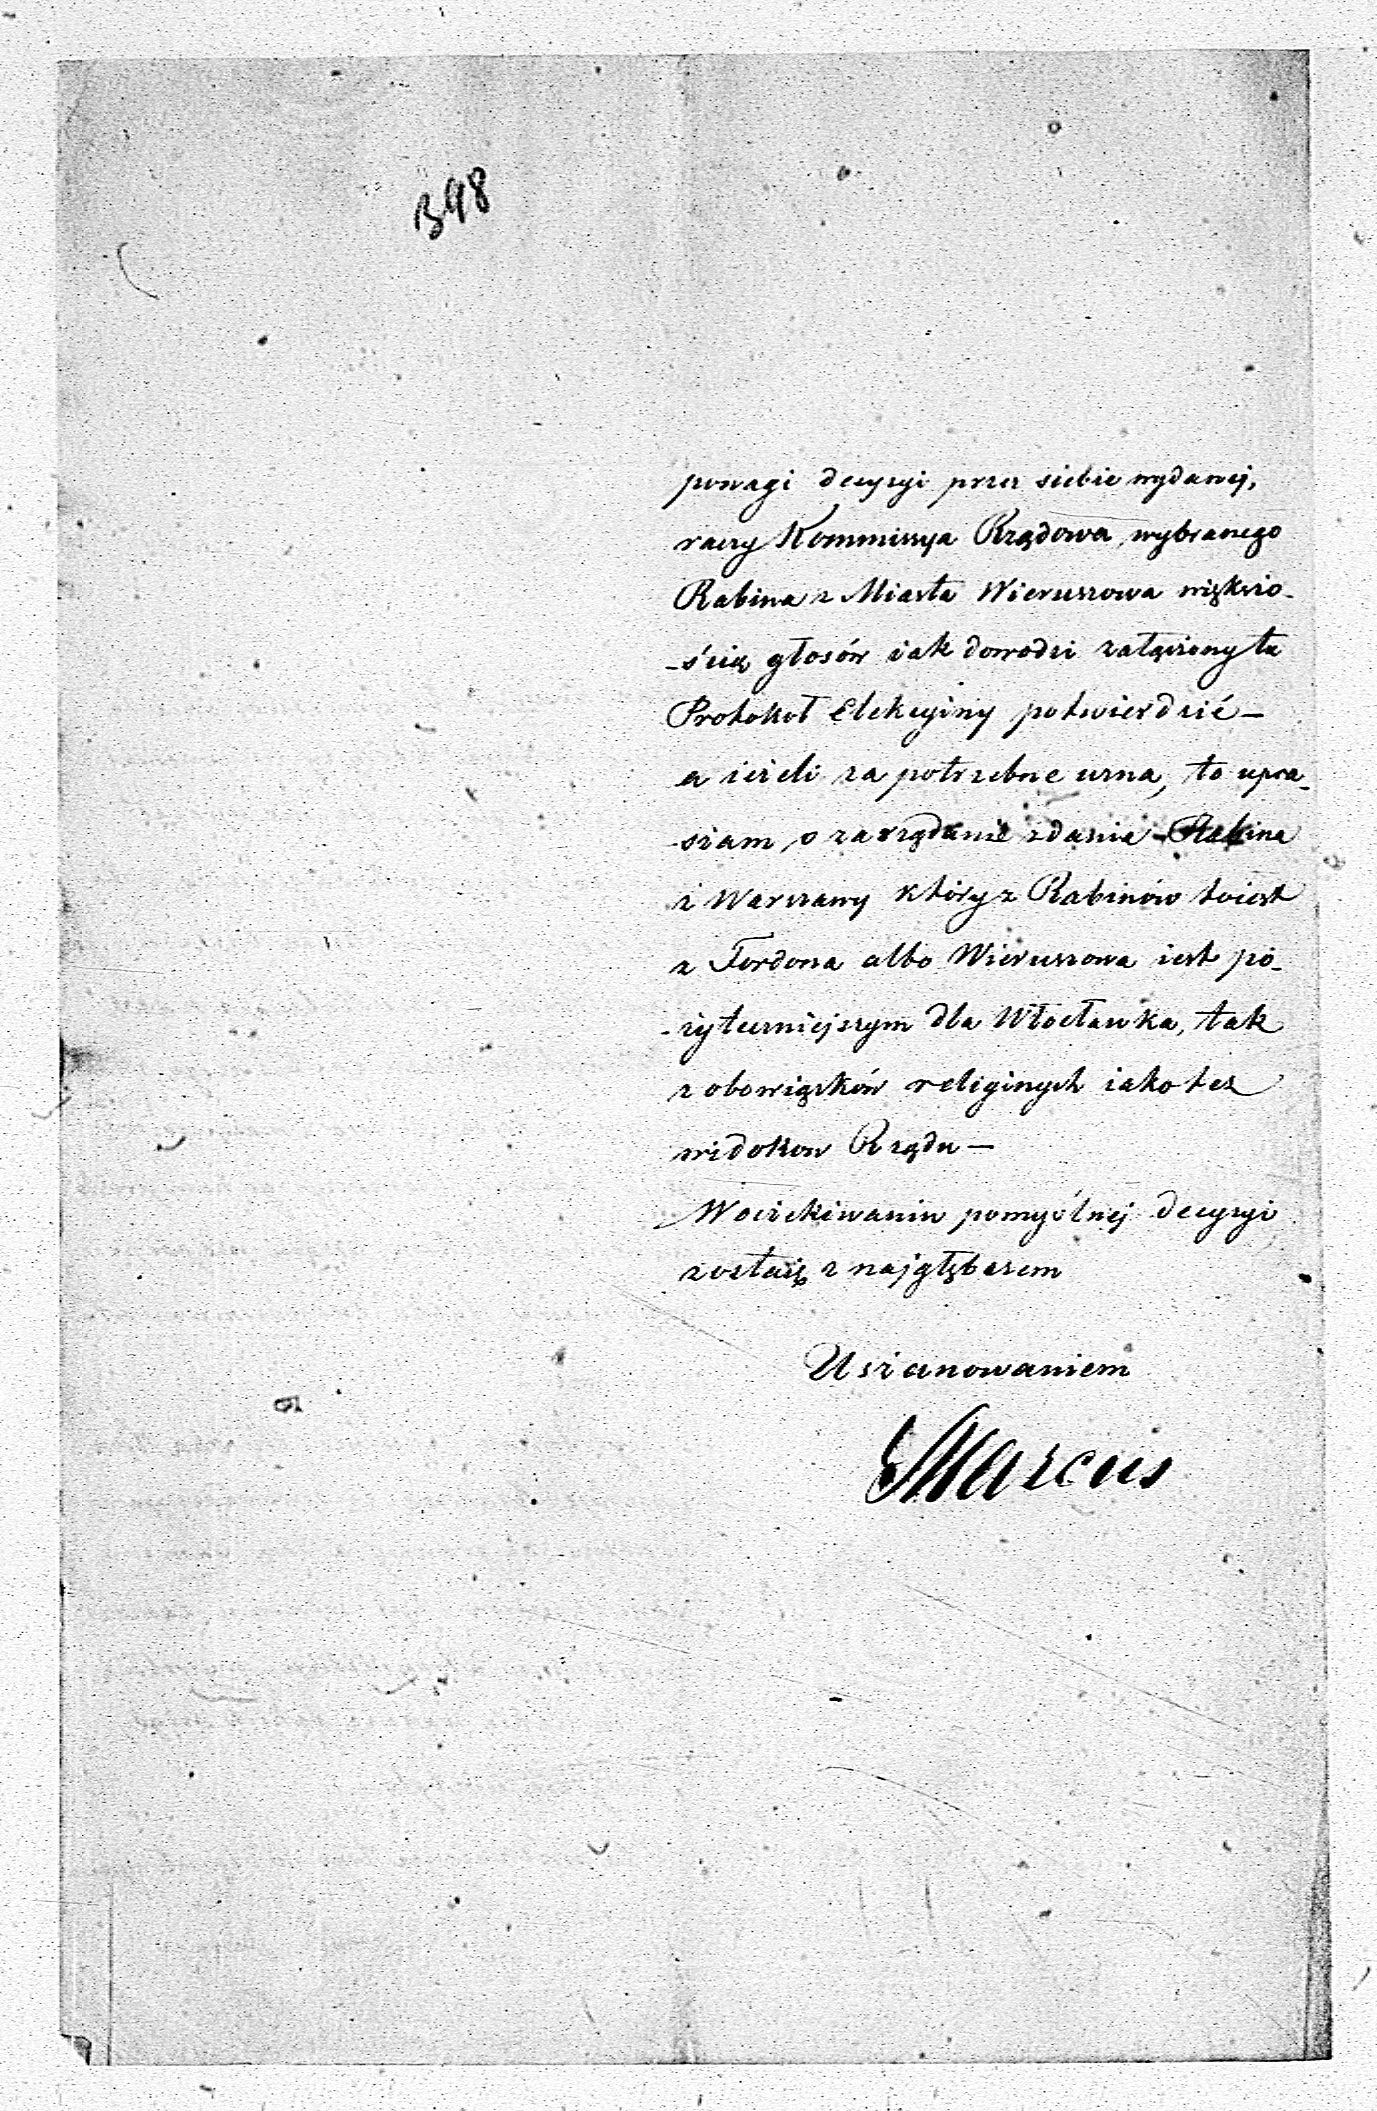 398
powagi decyzyi przez siebie wydanej,
raczy Kommissya Rządowa, wybranego
Rabina z Miasta Wieruszowa większo-
-ścią głosów iak dowodzi załączony tu
Protokoł Elekcyiny potwierdzić —
a ieżeli za potrzebne uzna, to upra-
-szam, o zarządanie zdania Rabina
z Warszawy który z Rabinów toiest
z Fordona albo Wieruszowa iest po-
-żyteczniejszym dla Włocławka, tak
z obowiązków religinych iako tez
widokow Rządu —
W oczekiwaniu pomyślnej decyzyi
zostaię z najgłębszem
Uszanowaniem
Marcus